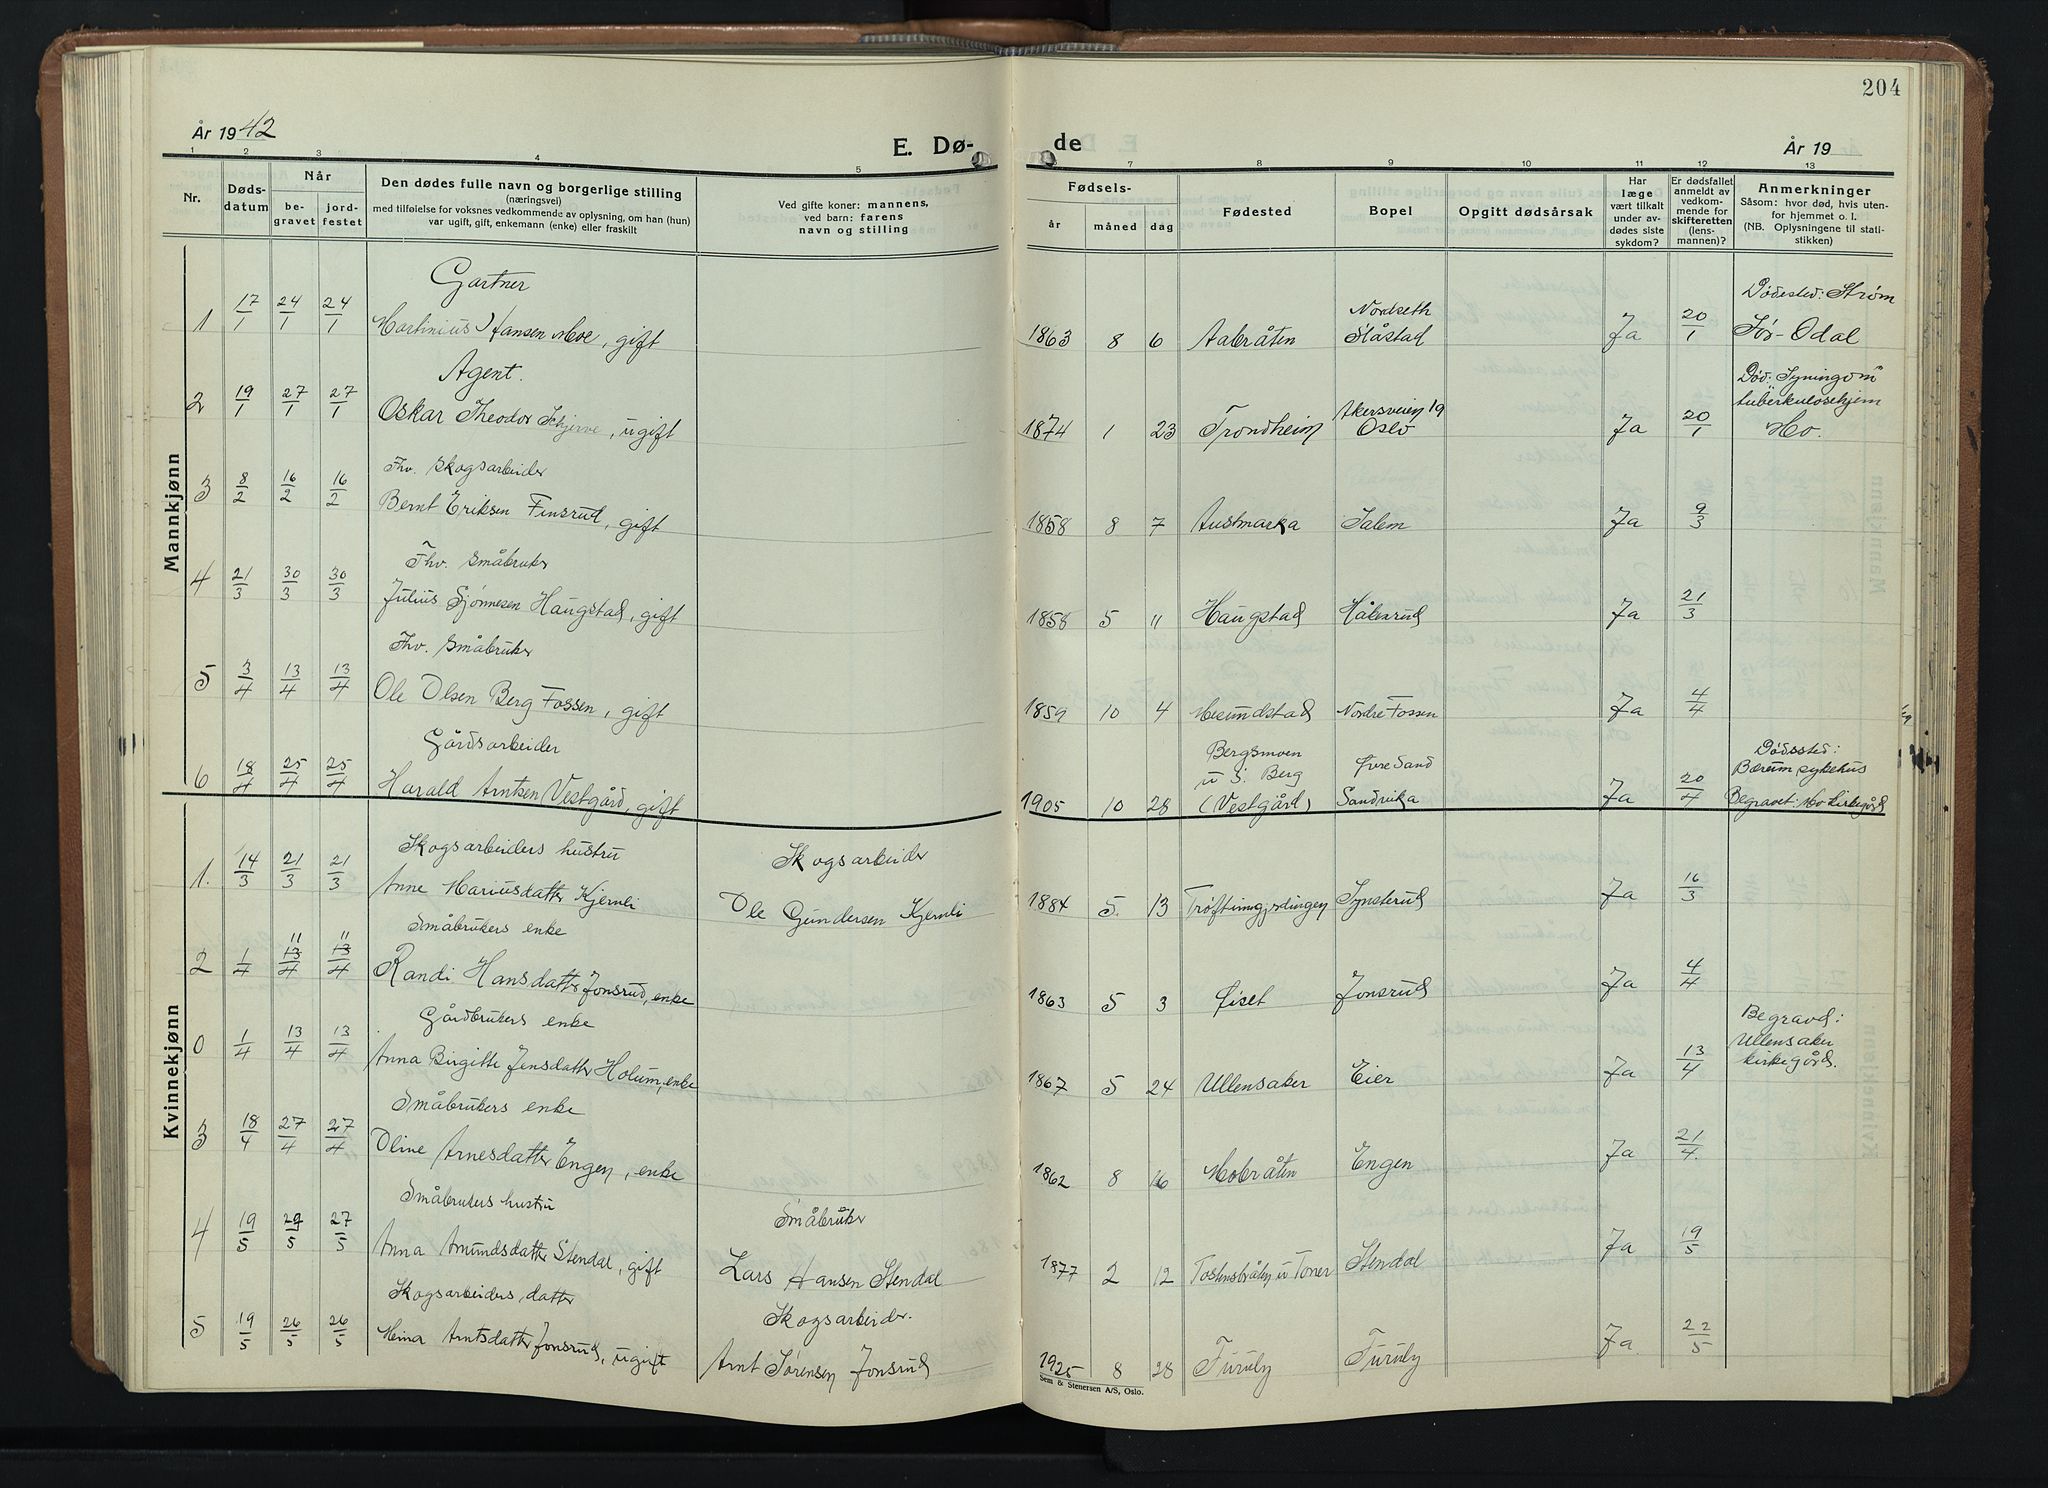 204
År 1942
E. Dø-
de
År 19
1 2 3 4 5
7 8 9 10 11 12 13
Nr.
Døds-
datum
Når
be-
gravet
jord-
festet
Den dødes fulle navn og borgerlige stilling
(næringsvei)
med tilføielse for voksnes vedkommende av oplysning, om han (hun)
var ugift, gift, enkemann (enke) eller fraskilt
Ved gifte koner: mannens,
ved barn: farens
navn og stilling
Fødsels-
år måned dag
Fødested
Bopel
Opgitt dødsårsak
Har
læge
vært tilkalt
under av-
dødes siste
sykdom?
Er dødsfallet
anmeldt av
vedkom-
mende for
skifteretten
(lens-
mannen)?
Anmerkninger
Såsom: hvor død, hvis uten-
for hjemmet o. l.
(NB. Oplysningene til stati-
stikken)
Mannkjønn
Gartner
Nordseth
Dødssted: Strøm
1 17/1 24/1 24/1 Martinius Hansen Moe, gift 1863 8 6 Aabråten Slåstad Ja 20/1 Sør-Odal
Agent.
Akersveien 19
Død: "Syningom"
tuberkulosehjem
2 19/1 27/1 27/1 Oskar Theodor Schjerve, ugift 1874 1 23 Trondheim Oslo Ja 20/1 Mo.
Fhv. Skogsarbeider
3 8/2 16/2 16/2 Bernt Eriksen Finsrud, gift 1858 8 7 Austmarka Salem Ja 9/3
Fhv. Småbruker
4 21/3 30/3 30/3 Julius Sjønnesen Haugstad, gift 1858 5 11 Haugstad Håkenrud Ja 21/3
Fhv. Småbruker
5 3/4 13/4 13/4 Ole Olsen Berg Fossen, gift 1859 10 4 Mesundstad Nordre Fossen Ja 4/4
Gårdsarbeider
Bergsmoen
u S. Berg
Øvre Sand
Dødssted:
Bærum sykehus
6 18/4 25/4 25/4 Harald Arntsen Vestgård, gift 1905 10 28 (Vestgård) Sandvika Ja 20/4 Begravet: Mo kirkegård
Kvinnekjønn
Skogsarbeiders hustru
Skogsarbeider
1. 14/3 21/3 21/3 Anne Mariusdatter Kjernli Ole Gundersen Kjernli 1884 5. 13 Synsterud Ja 16/3
Småbrukers enke
11 11
2 1/4 13/4 13/4 Randi Hansdatter Jonsrud, enke 1863 5 3 Øiset Jonsrud Ja 4/4
Gårdbrukers enke
Begravd:
Ullensaker
kirkegård.
0 1/4 13/4 13/4 Anna Birgitte Jensdatter Holum, enke 1867 5 24 Ullensaker Eier Ja 13/4
Småbrukers enke
3 18/4 27/4 27/4 Oline Arnesdatter Engen, enke 1862 8 16 Mobråten Engen Ja 21/4
Småbrukers hustru
Småbruker
4 19/5 27/5 27/5 Anna Amundsdatter Stendal, gift Lars Hansen Stendal 1877 2 12 Tostensbråten u Toner Stendal Ja 19/5
Skogsarbeiders datter
Skogsarbeider.
5 19/5 26/5 26/5 Mina Arntsdatter Jonsrud, ugift Arnt Sørensen Jonsrud 1925 8 28 Furuly Furuly Ja 22/5
Sem & Stenersen A/S, Oslo.